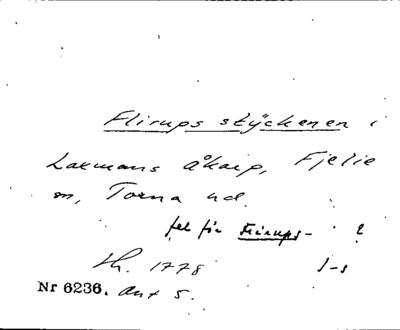 Flirups stÿckenen i
Laxmans åkarp, Fjelie
m, Torna hd.
fel för Feirups- ?
Lh. 1778 J-s
Nr 6236. Akt 5.